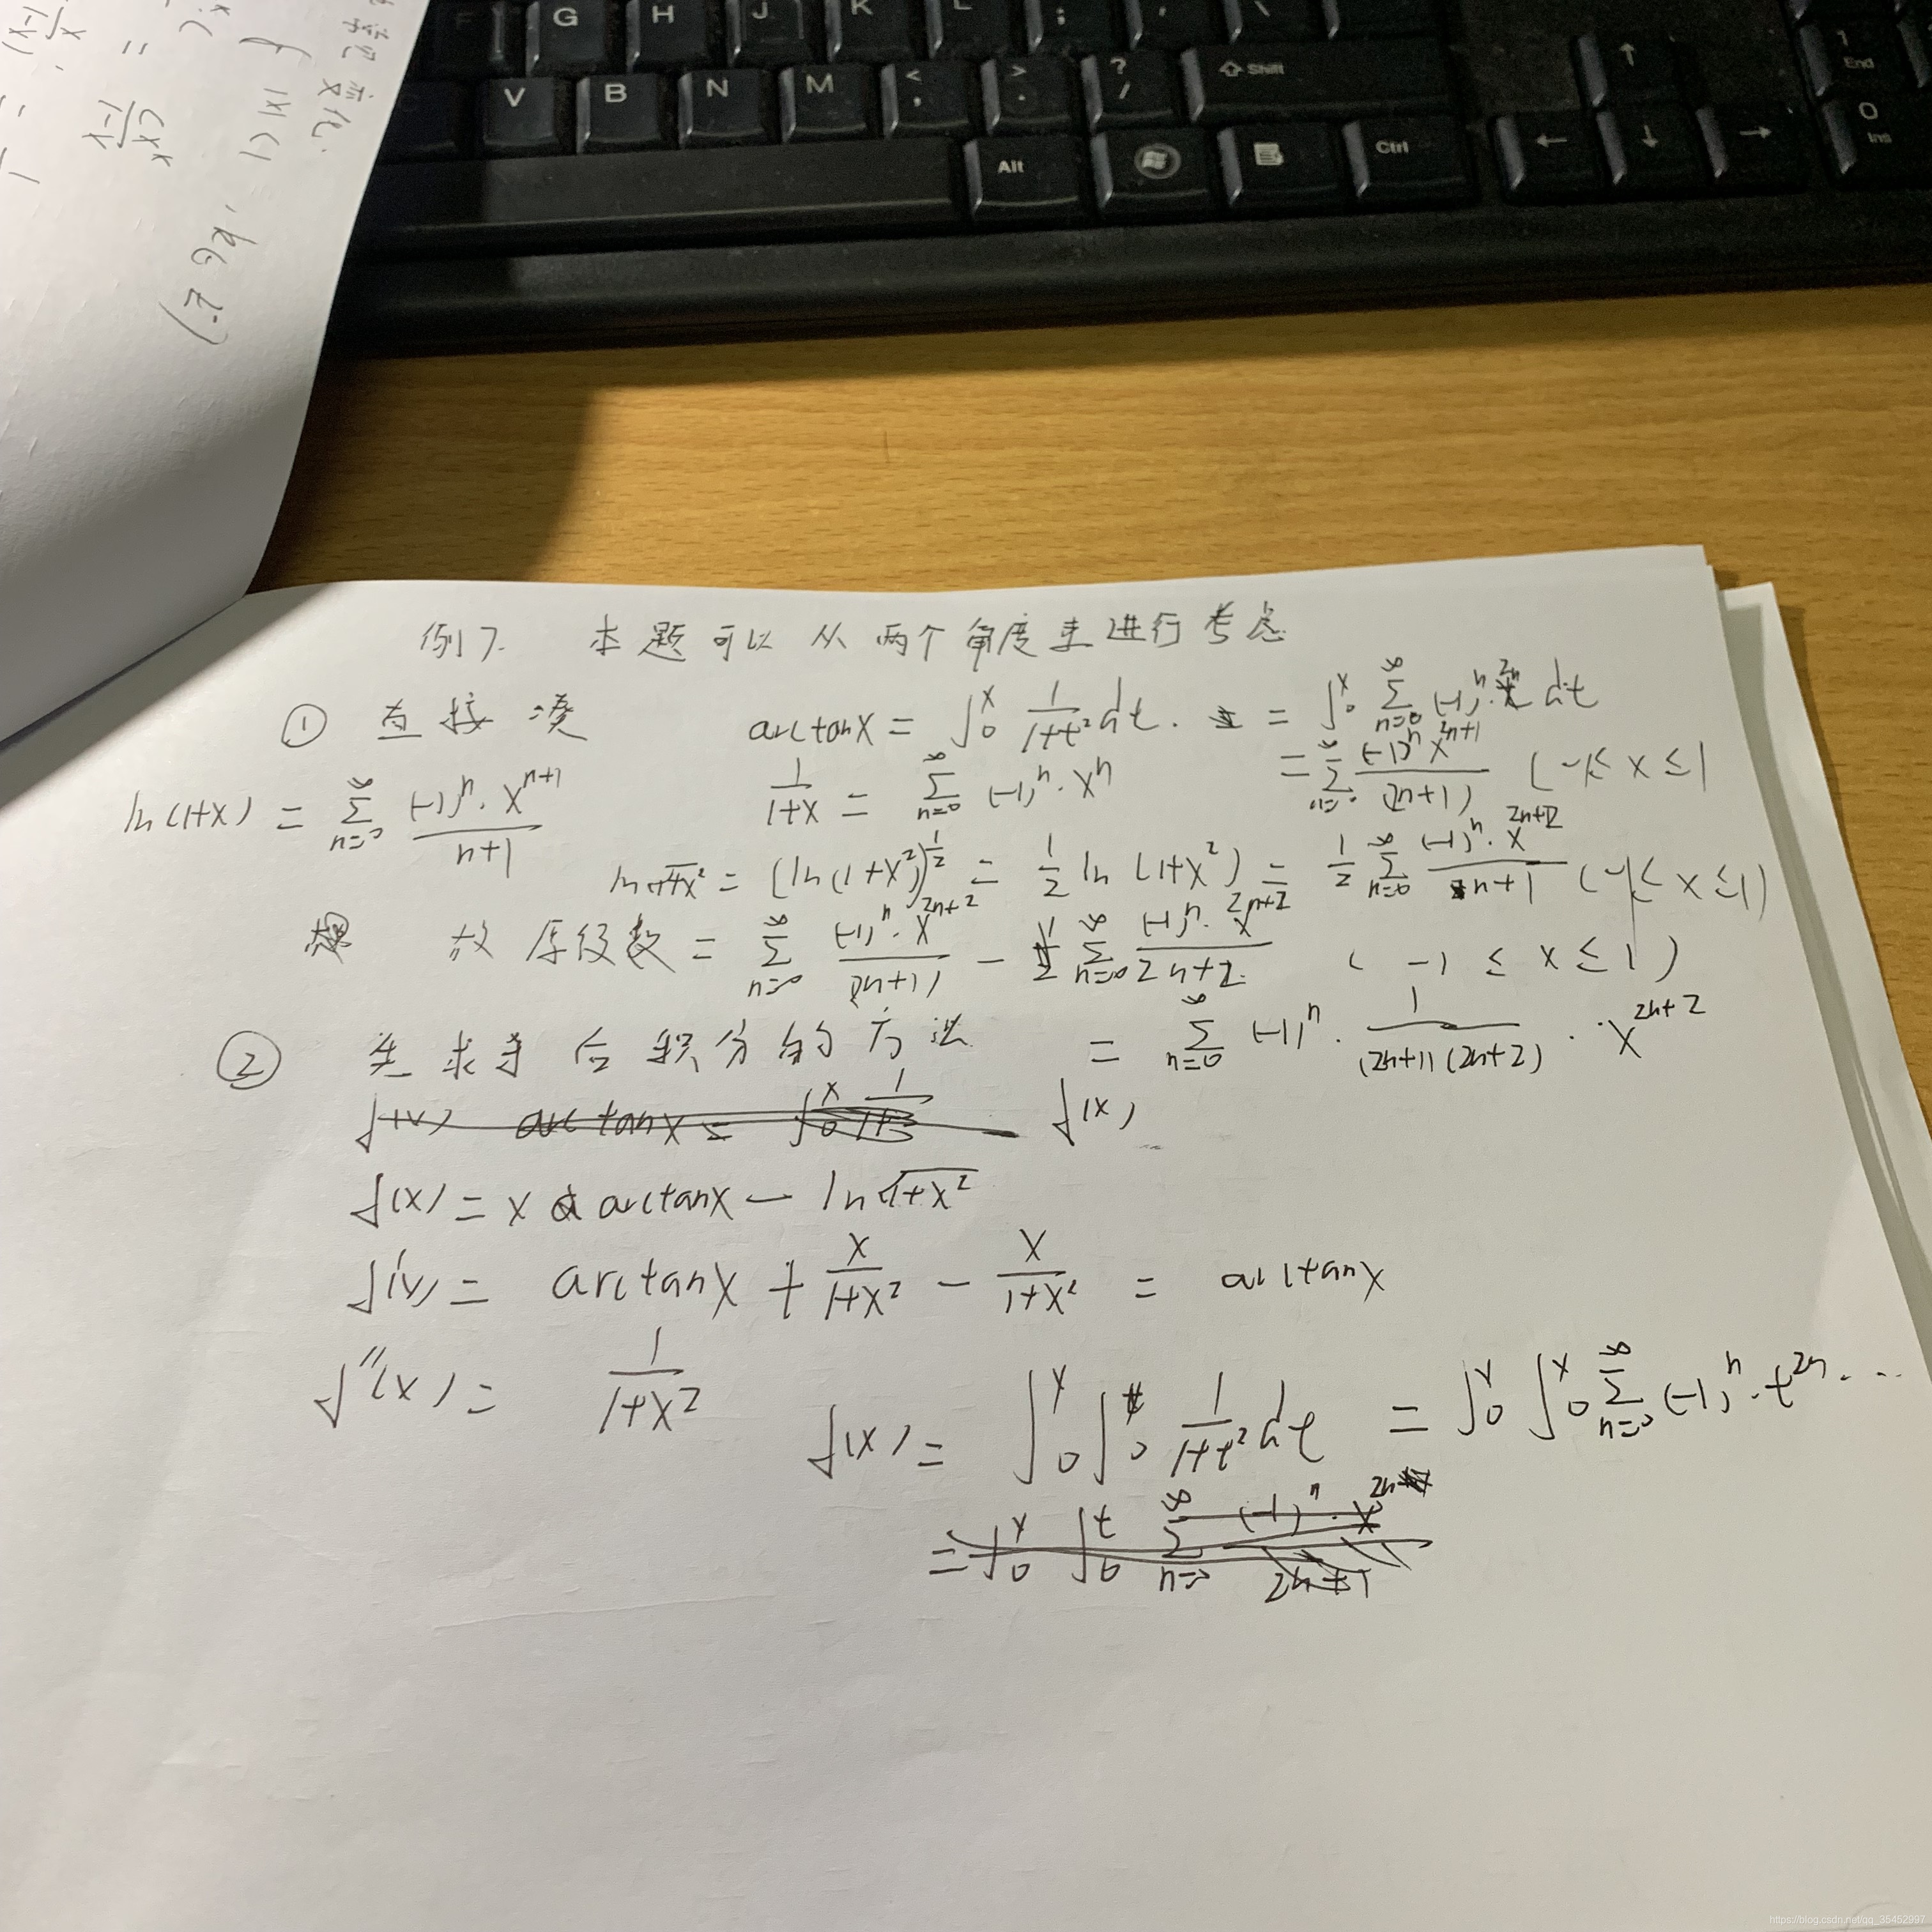 G H J K L ; ' \
V B N M < , > . ? / ⇧ Shift ↑ 1 End
Alt Ctrl ← ↓ → 0 Ins
|x|<1
例7. 本题可以从两个角度来进行考虑
① 直接凑 arctanx = ∫₀ˣ 1/(1+t²) dt. = ∫₀ˣ ∑_{n=0}^∞ (-1)ⁿ· dt
= ∑_{n=0}^∞ (-1)ⁿ x^{2n+1}/(2n+1) (-1≤ x ≤1
ln(1+x) = ∑_{n=0}^∞ (-1)ⁿ·x^{n+1}/(n+1) 1/(1+x) = ∑_{n=0}^∞ (-1)ⁿ·xⁿ
ln√(1+x²) = (ln(1+x²))^{1/2} = 1/2 ln(1+x²) = 1/2 ∑_{n=0}^∞ (-1)ⁿ·x^{2n+2}/(n+1) (-1≤ x ≤1)
故原级数 = ∑_{n=0}^∞ (-1)ⁿ·x^{2n+2}/(2n+1) - ∑_{n=0}^∞ (-1)ⁿ·x^{2n+2}/(2n+2) ( -1 ≤ x ≤ 1 )
② 先求导后积分的方法 = ∑_{n=0}^∞ (-1)ⁿ· 1/((2n+1)(2n+2)) · x^{2n+2}
f(x)
f(x) = x arctanx - ln√(1+x²)
f'(x) = arctanx + x/(1+x²) - x/(1+x²) = arctanx
f''(x) = 1/(1+x²)
f(x) = ∫₀ˣ ∫₀ 1/(1+t²) dt = ∫₀ˣ ∫₀ˣ ∑_{n=0}^∞ (-1)ⁿ·t^{2n}...
https://blog.csdn.net/qq_35452997